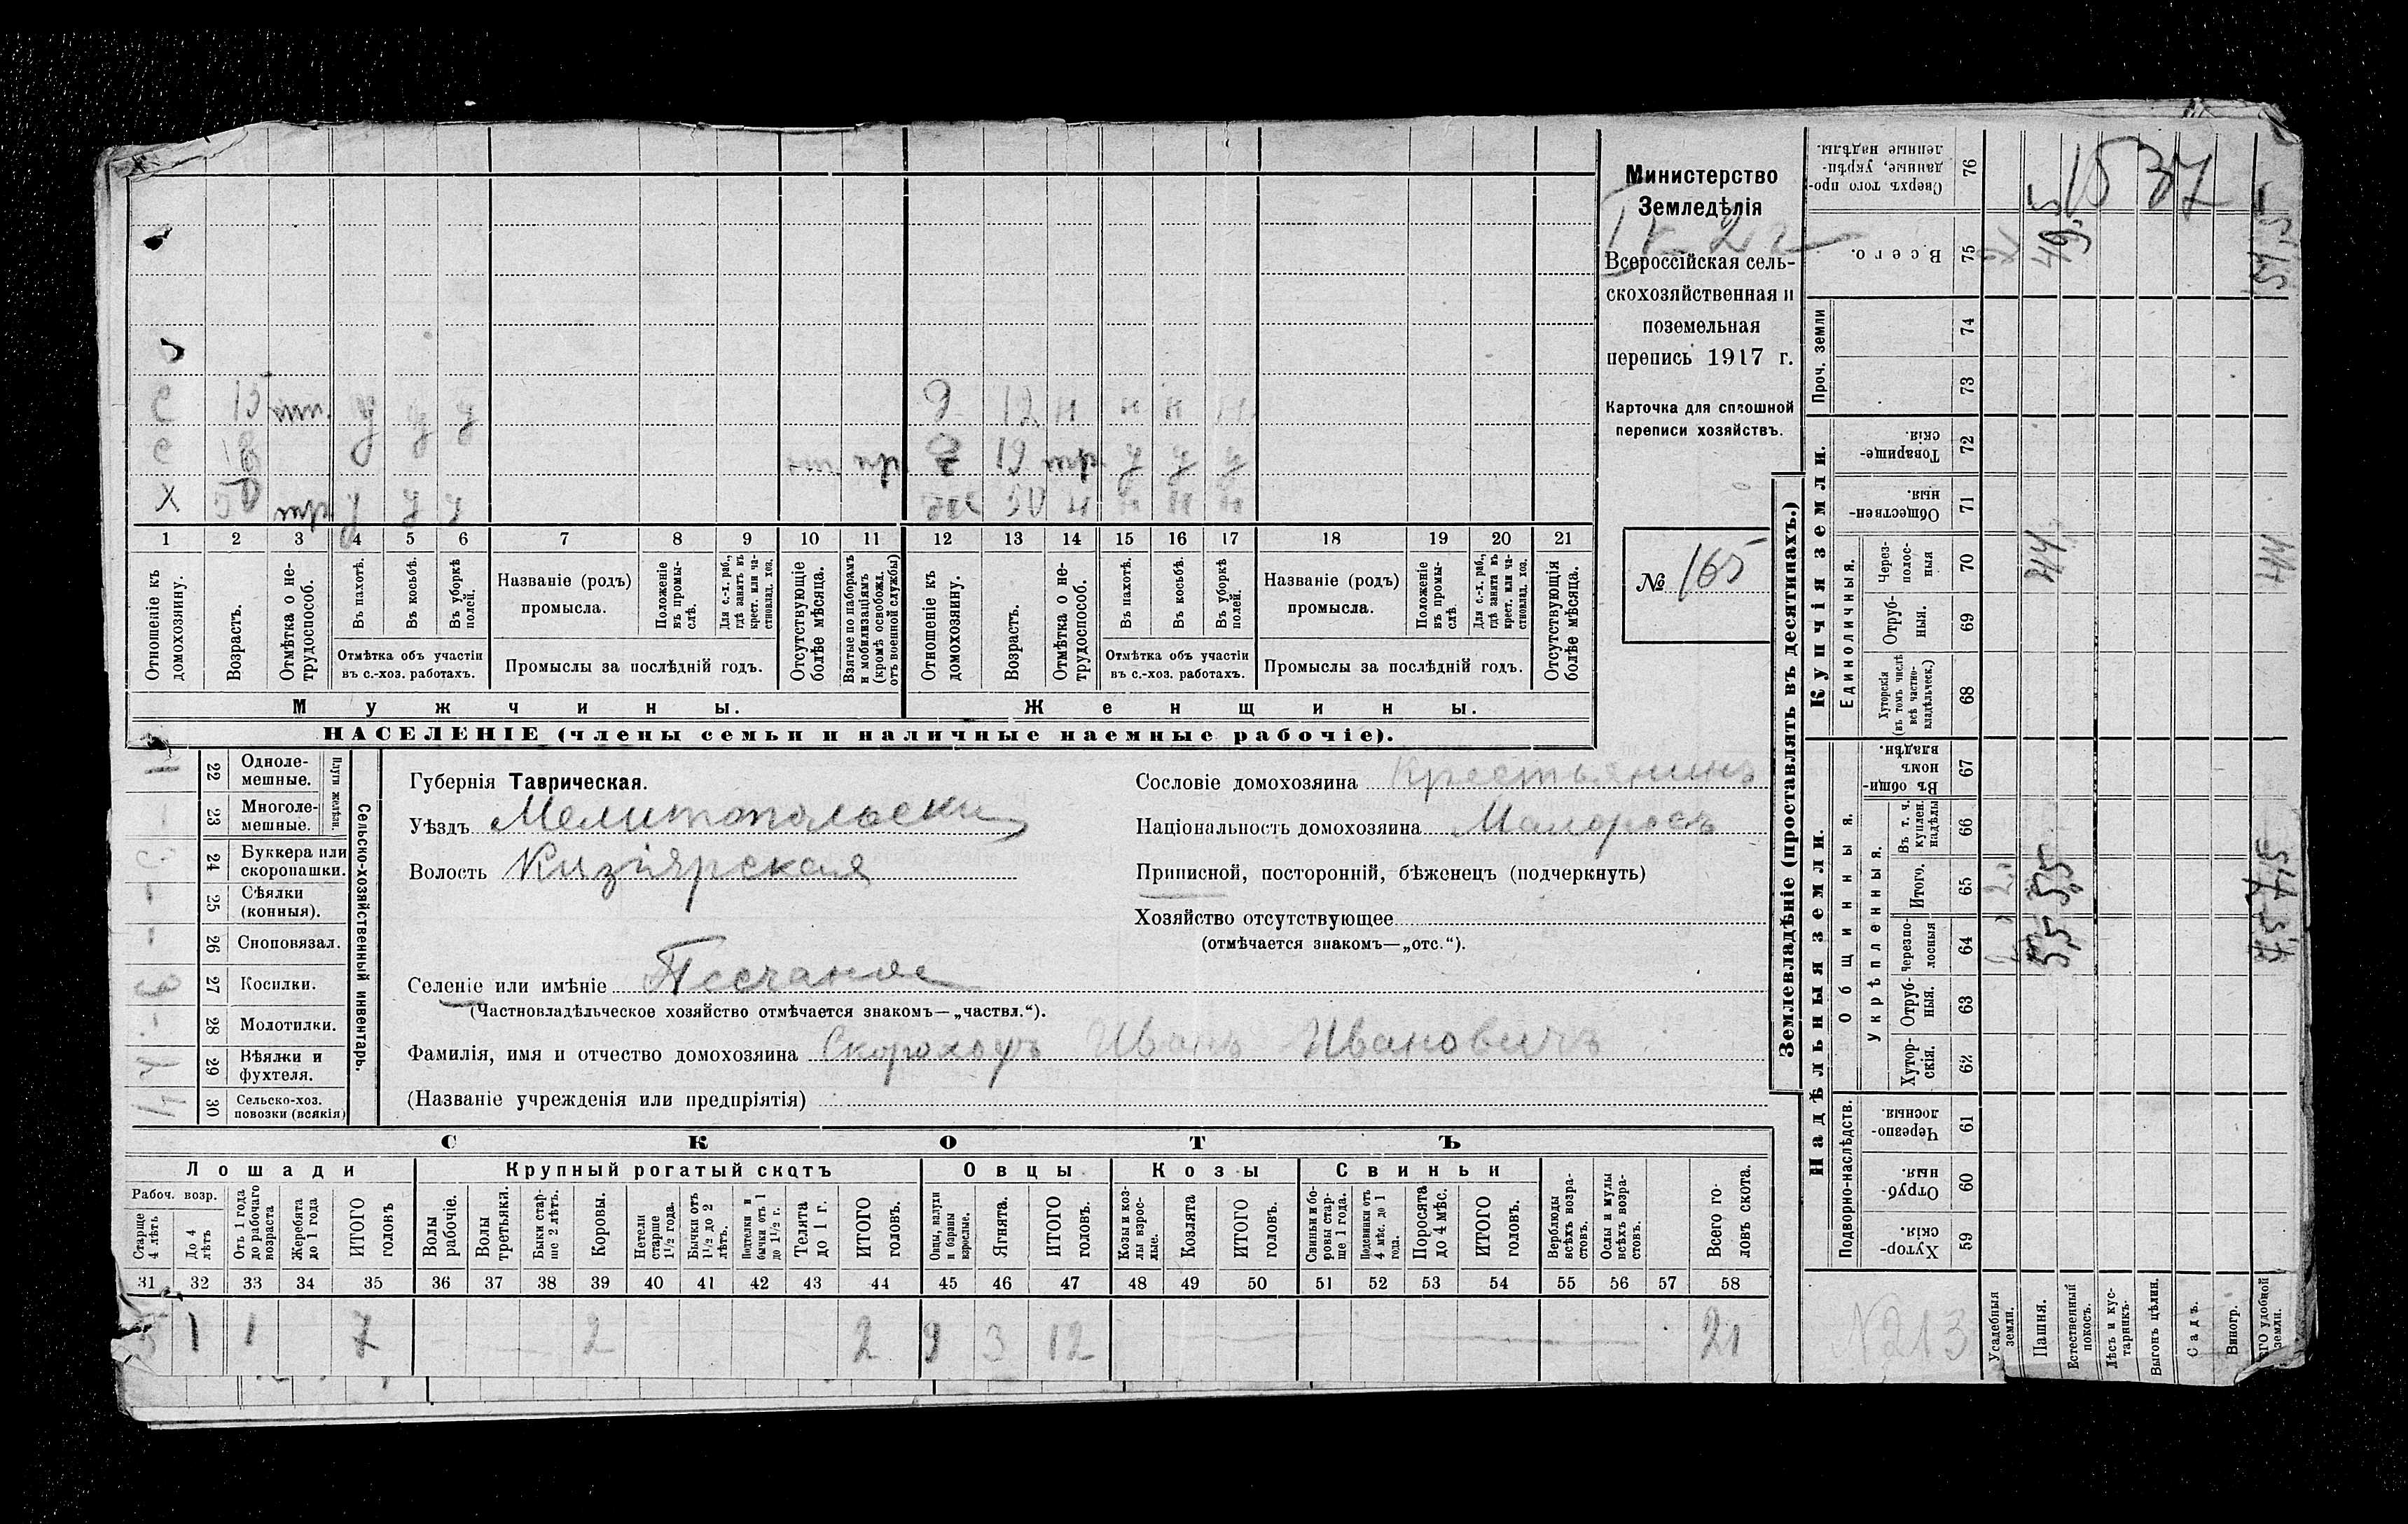 Министерство
Земледѣлія
Всероссійская сель-
скохозяйственная и
поземельная
перепись 1917 г.
Карточка для сплошной
переписи хозяйствъ.
№ 165
1537
С 13 у у у д 12 н н н н
С 18 пр 19 тр у у у
Х 50 тр у у у 50 н н н н
1 2 3 4 5 6 7 8 9 10 11 12 13 14 15 16 17 18 19 20 21
Отношеніе къ домохозяину.
Возрастъ.
Отмѣтка о не-трудоспособ.
Въ пахотѣ.
Въ косьбѣ.
Въ уборкѣ полей.
Отмѣтка объ участіи
въ с.-хоз. работахъ.
Названіе (родъ)
промысла.
Положеніе въ промы-слѣ.
Для с.-х. раб., гдѣ занятъ въ крест. или ча-стновлад. хоз.
Промыслы за послѣдній годъ.
Отсутствующіе болѣе мѣсяца.
Взятые по наборамъ и мобилизаціямъ (кромѣ освобожд. отъ военной службы)
Отношеніе къ домохозяину.
Возрастъ.
Отмѣтка о не-трудоспособ.
Въ пахотѣ.
Въ косьбѣ.
Въ уборкѣ полей.
Отмѣтка объ участіи
въ с.-хоз. работахъ.
Названіе (родъ)
промысла.
Положеніе въ промы-слѣ.
Для с.-х. раб., гдѣ занята въ крест. или ча-стновлад. хоз.
Промыслы за послѣдній годъ.
Отсутствующія болѣе мѣсяца.
Мужчины. Женщины.
НАСЕЛЕНІЕ (члены семьи и наличные наемные рабочіе).
Сельско-хозяйственный инвентарь.
Плуги желѣзн.
22 Однолемешные. 1
23 Многолемешные.
24 Буккера или скоропашки.
25 Сѣялки (конныя).
26 Сноповязал.
27 Косилки.
28 Молотилки.
29 Вѣялки и фухтеля.
30 Сельско-хоз. повозки (всякія)
Губернія Таврическая.
Уѣздъ Мелитопольски
Волость Кизіярская
Селеніе или имѣніе Песчаное
(Частновладѣльческое хозяйство отмѣчается знакомъ—„частвл.“).
Фамилія, имя и отчество домохозяина Скороходъ Иванъ Ивановичъ
(Названіе учрежденія или предпріятія)
Сословіе домохозяина Крестьянинъ
Національность домохозяина Малоросъ
Приписной, посторонній, бѣженецъ (подчеркнуть)
Хозяйство отсутствующее
(отмѣчается знакомъ—„отс.“).
СКОТЪ
Лошади Крупный рогатый скотъ Овцы Козы Свиньи
Рабоч. возр.
Старше 4 лѣтъ
До 4 лѣтъ
Отъ 1 года до рабочаго возраста
Жеребята до 1 года
ИТОГО головъ
Волы рабочіе.
Волы третьяки.
Быки стар-ше 2 лѣтъ.
Коровы.
Нетели старше 1½ года.
Бычки отъ 1½ до 2 лѣтъ.
Подтелки и бычки отъ 1 до 1½ г.
Телята до 1 г.
ИТОГО головъ.
Овцы, валухи и бараны взрослые.
Ягнята.
ИТОГО головъ.
Козы и коз-лы взрос-лые.
Козлята
ИТОГО головъ.
Свиньи и бо-ровы стар-ше 1 года.
Подсвинки отъ 4 мѣс. до 1 года.
Поросята до 4 мѣс.
ИТОГО головъ.
Верблюды всѣхъ возра-стовъ.
Ослы и мулы всѣхъ возра-стовъ.
Всего го-ловъ скота.
31 32 33 34 35 36 37 38 39 40 41 42 43 44 45 46 47 48 49 50 51 52 53 54 55 56 57 58
5 1 1 7 2 2 9 3 12 21
Землевладѣніе (проставлять въ десятинахъ.)
Надѣльныя земли. Купчія земли. Проч. земли
Подворно-наслѣдств. Общинныя. Укрѣпленныя. Единоличныя.
59 Хутор-скія.
60 Отруб-ныя.
61 Черезпо-лосныя.
62 Хутор-скія.
63 Отруб-ныя.
64 Черезпо-лосныя
65 Итого.
66 Въ т. ч. куплен. надѣлы
67 Въ общи-номъ владѣн.
68 Хуторскія (въ томъ числѣ всѣ частно-владѣльческ.)
69 Отруб-ныя.
70 Через-полос-ныя
71 Обществен-ныя.
72 Товарище-скія.
73
74
75 Всего.
76 Сверхъ того про-данные, укрѣп-ленные надѣлы.
Усадебныя земли. 2 2
Пашня. 5,5 5,5 44 49,5
Естественный покосъ.
Лѣсъ и кус-тарникъ.
Выгонъ цѣлин.
Садъ.
Виногр.
ГО удобной земли. 7,5 7,5 44 51,5
№213